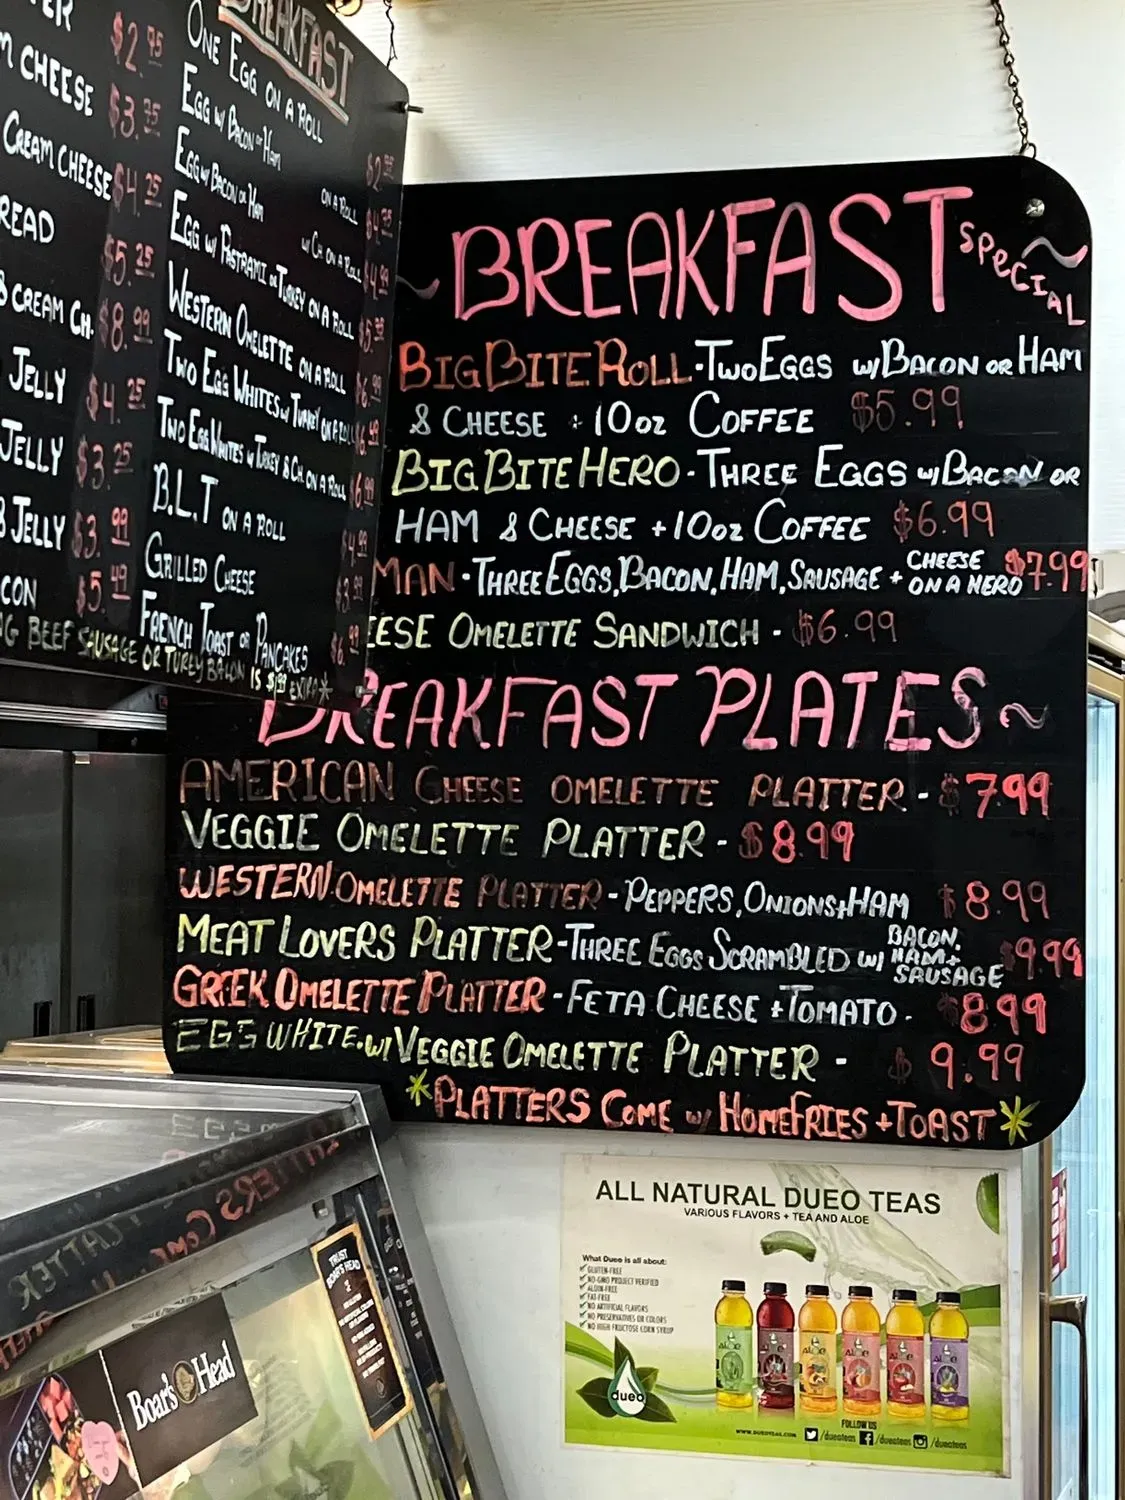 $2.95
M CHEESE $3.75
CREAM CHEESE $4.25
READ $5.25
CREAM CH. $8.99
JELLY $4.25
JELLY $3.25
JELLY $3.99
CON $5.49
BREAKFAST
ONE EGG ON A ROLL
EGG W/ BACON OR HAM ON A ROLL
EGG W/ BACON OR HAM W/ CH. ON A ROLL
EGG W/ PASTRAMI OR TURKEY ON A ROLL
WESTERN OMELETTE ON A ROLL
TWO EGG WHITES W/ TURKEY ON A ROLL
TWO EGG WHITES W/ TURKEY & CH. ON A ROLL
B.L.T ON A ROLL
GRILLED CHEESE
FRENCH TOAST OR PANCAKES
BEEF SAUSAGE OR TURKEY BACON IS EXTRA*
~ BREAKFAST SPECIAL ~
BIG BITE ROLL • TWO EGGS W/ BACON OR HAM
& CHEESE + 10oz COFFEE $5.99
BIG BITE HERO - THREE EGGS W/ BACON OR
HAM & CHEESE + 10oz COFFEE $6.99
MAN • THREE EGGS, BACON, HAM, SAUSAGE + CHEESE ON A HERO $7.99
EESE OMELETTE SANDWICH - $6.99
BREAKFAST PLATES ~
AMERICAN CHEESE OMELETTE PLATTER - $7.99
VEGGIE OMELETTE PLATTER - $8.99
WESTERN OMELETTE PLATTER - PEPPERS, ONIONS + HAM $8.99
MEAT LOVERS PLATTER - THREE EGGS SCRAMBLED W/ BACON, HAM + SAUSAGE $9.99
GREEK OMELETTE PLATTER - FETA CHEESE + TOMATO - $8.99
EGG WHITE W/ VEGGIE OMELETTE PLATTER - $9.99
*PLATTERS COME W/ HOMEFRIES + TOAST*
ALL NATURAL DUEO TEAS
VARIOUS FLAVORS + TEA AND ALOE
What Dueo is all about:
GLUTEN-FREE
NO-GMO PROJECT VERIFIED
ALOIN-FREE
FAT-FREE
NO ARTIFICIAL FLAVORS
NO PRESERVATIVES OR COLORS
NO HIGH FRUCTOSE CORN SYRUP
dueo
FOLLOW US
WWW.DUEOTEAS.COM /dueoteas /dueoteas /dueoteas
TRUST BOAR'S HEAD
Boar's Head